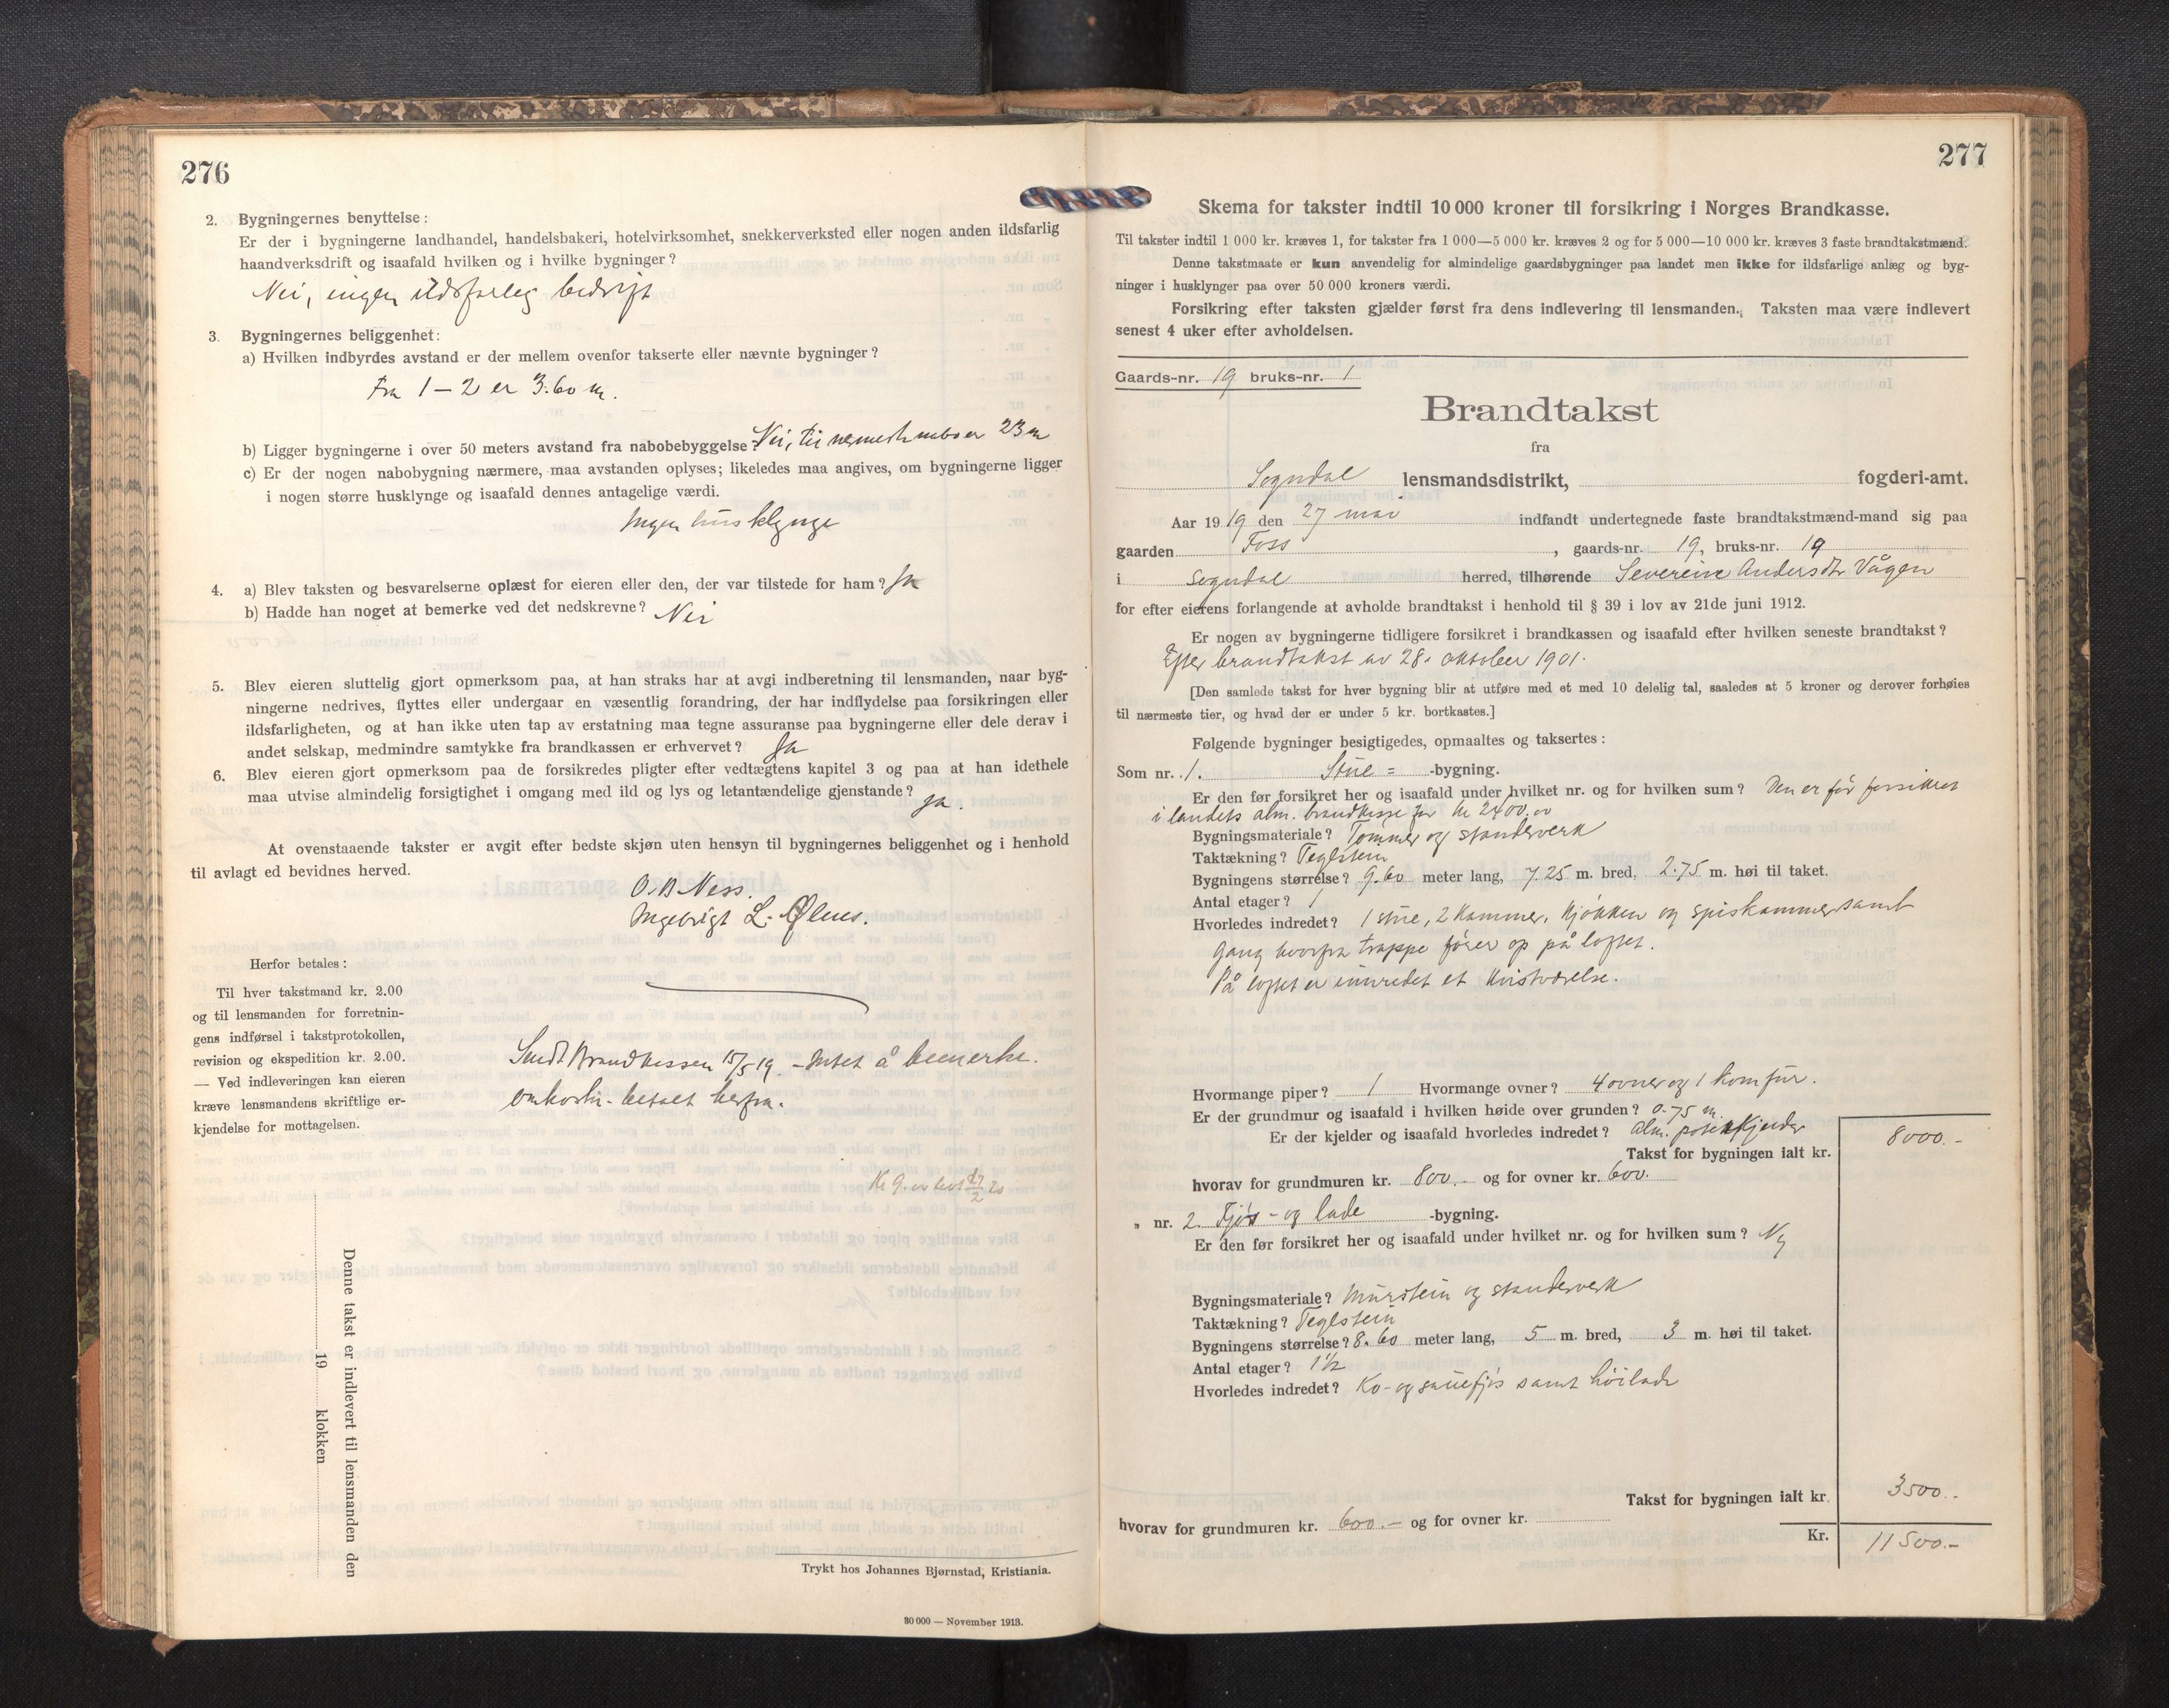 276
2. Bygningernes benyttelse:
Er der i bygningerne landhandel, handelsbakeri, hotelvirksomhet, snekkerverksted eller nogen anden ildsfarlig
haandverksdrift og isaafald hvilken og i hvilke bygninger?
Nei, ingen ildsfarleg bedrift
3. Bygningernes beliggenhet:
a) Hvilken indbyrdes avstand er der mellem ovenfor takserte eller nævnte bygninger?
Fra 1 – 2 er 3.60 m.
b) Ligger bygningerne i over 50 meters avstand fra nabobebyggelse? Nei, til nermeste nabo er 23 m
c) Er der nogen nabobygning nærmere, maa avstanden oplyses; likeledes maa angives, om bygningerne ligger
i nogen større husklynge og isaafald dennes antagelige værdi.
Ingen husklynge
4. a) Blev taksten og besvarelserne oplæst for eieren eller den, der var tilstede for ham? Ja
b) Hadde han noget at bemerke ved det nedskrevne? Nei
5. Blev eieren sluttelig gjort opmerksom paa, at han straks har at avgi indberetning til lensmanden, naar byg-
ningerne nedrives, flyttes eller undergaar en væsentlig forandring, der har indflydelse paa forsikringen eller
ildsfarligheten, og at han ikke uten tap av erstatning maa tegne assuranse paa bygningerne eller dele derav i
andet selskap, medmindre samtykke fra brandkassen er erhvervet? Ja
6. Blev eieren gjort opmerksom paa de forsikredes pligter efter vedtægtens kapitel 3 og paa at han idethele
maa utvise almindelig forsigtighet i omgang med ild og lys og letantændelige gjenstande? ja.
At ovenstaaende takster er avgit efter bedste skjøn uten hensyn til bygningernes beliggenhet og i henhold
til avlagt ed bevidnes herved.
O. B. Ness.
Ingebrigt L. Ølnes.
Herfor betales:
Til hver takstmand kr. 2.00
og til lensmanden for forretnin-
gens indførsel i takstprotokollen,
revision og ekspedition kr. 2.00.
— Ved indleveringen kan eieren
kræve lensmandens skriftlige er-
kjendelse for mottagelsen.
Sendt Brandkassen 15/5 19. – Intet å bemerke.
omkostn. betalt herfra.
Kr 9.
Denne takst er indlevert til lensmanden den
19 klokken
Trykt hos Johannes Bjørnstad, Kristiania.
30 000 — November 1913.
277
Skema for takster indtil 10 000 kroner til forsikring i Norges Brandkasse.
Til takster indtil 1 000 kr. kræves 1, for takster fra 1 000—5 000 kr. kræves 2 og for 5 000—10 000 kr. kræves 3 faste brandtakstmænd.
Denne takstmaate er kun anvendelig for almindelige gaardsbygninger paa landet men ikke for ildsfarlige anlæg og byg-
ninger i husklynger paa over 50 000 kroners værdi.
Forsikring efter taksten gjælder først fra dens indlevering til lensmanden. Taksten maa være indlevert
senest 4 uker efter avholdelsen.
Gaards-nr. 19 bruks-nr. 1
Brandtakst
fra
Sogndal lensmandsdistrikt, fogderi-amt.
Aar 1919 den 27 mai indfandt undertegnede faste brandtakstmænd-mand sig paa
gaarden Foss, gaards-nr. 19, bruks-nr. 19
i Sogndal herred, tilhørende Severine Andersdtr Vågen
for efter eierens forlangende at avholde brandtakst i henhold til § 39 i lov av 21de juni 1912.
Er nogen av bygningerne tidligere forsikret i brandkassen og isaafald efter hvilken seneste brandtakst?
Efter brandtakst av 28. oktober 1901.
[Den samlede takst for hver bygning blir at utføre med et med 10 delelig tal, saaledes at 5 kroner og derover forhøies
til nærmeste tier, og hvad der er under 5 kr. bortkastes.]
Følgende bygninger besigtigedes, opmaaltes og taksertes:
Som nr. 1. Stue = -bygning.
Er den før forsikret her og isaafald under hvilket nr. og for hvilken sum? Den er før forsikret
i landets alm. brandkasse for kr 2400.00
Bygningsmateriale? Tømmer og standerverk
Taktækning? Teglstein
Bygningens størrelse? 9.60 meter lang, 7.25 m. bred, 2.75 m. høi til taket.
Antal etager? 1
Hvorledes indredet? 1 stue, 2 kammer, kjøkken og spiskammer samt
gang hvorfra trappe fører op på loftet.
På loftet er innredet et kvistværelse.
Hvormange piper? 1 Hvormange ovner? 4 ovner og 1 komfur.
Er der grundmur og isaafald i hvilken høide over grunden? 0.75 m.
Er der kjelder og isaafald hvorledes indredet? alm. potetkjelder
Takst for bygningen ialt kr. 8000.-
hvorav for grundmuren kr. 800.- og for ovner kr. 600.
„ nr. 2. Fjøs- og lade -bygning.
Er den før forsikret her og isaafald under hvilket nr. og for hvilken sum? Ny
Bygningsmateriale? Murstein og standerverk
Taktækning? Teglstein
Bygningens størrelse? 8.60 meter lang, 5 m. bred, 3 m. høi til taket.
Antal etager? 1 1/2
Hvorledes indredet? Ko- og sauefjøs samt høilade
Takst for bygningen ialt kr. 3500.-
hvorav for grundmuren kr. 600.- og for ovner kr.
Kr. 11500.-